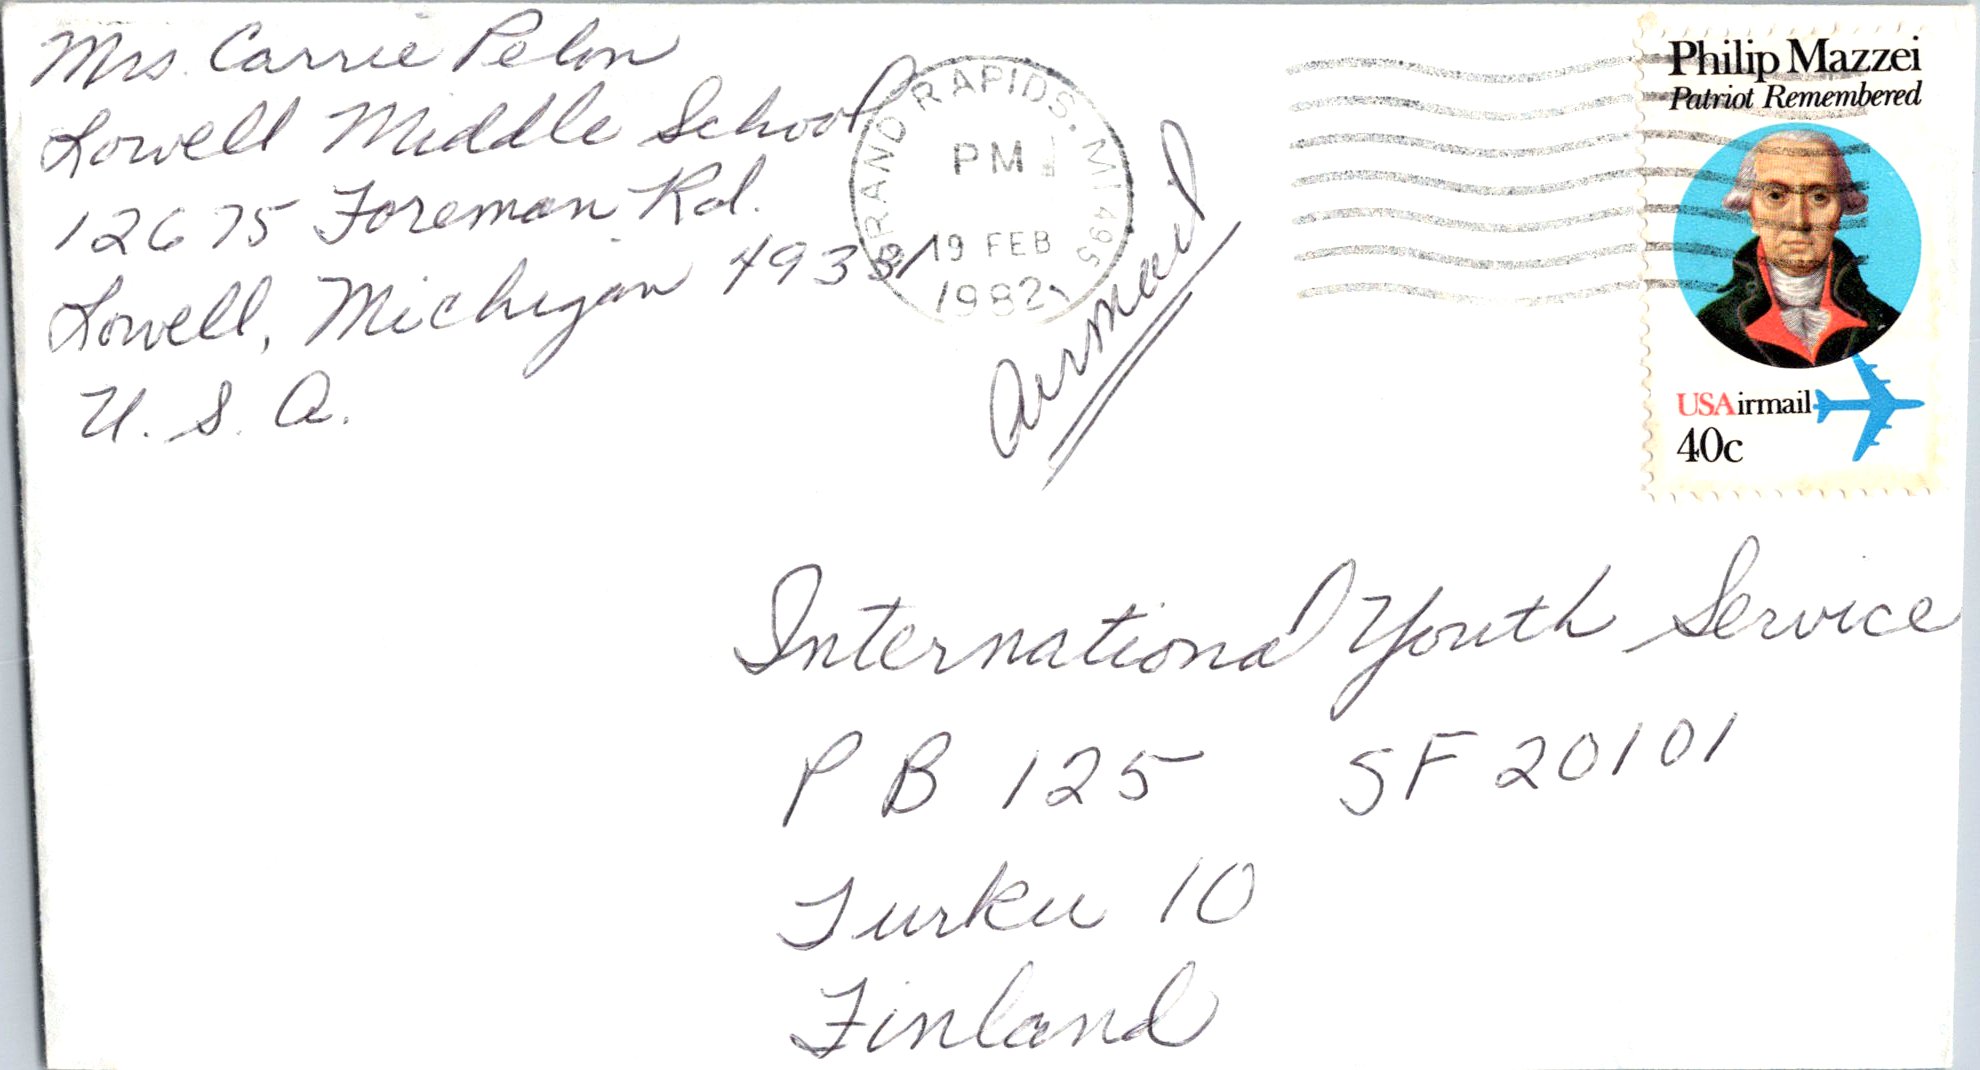 Mrs. Carrie Pelon
Lowell Middle School
12675 Foreman Rd.
Lowell, Michigan 49331
U. S. A.
GRAND RAPIDS, MI 495
PM
19 FEB
1982
Airmail
Philip Mazzei
Patriot Remembered
USAirmail
40c
International Youth Service
P B 125 SF 20101
Turku 10
Finland